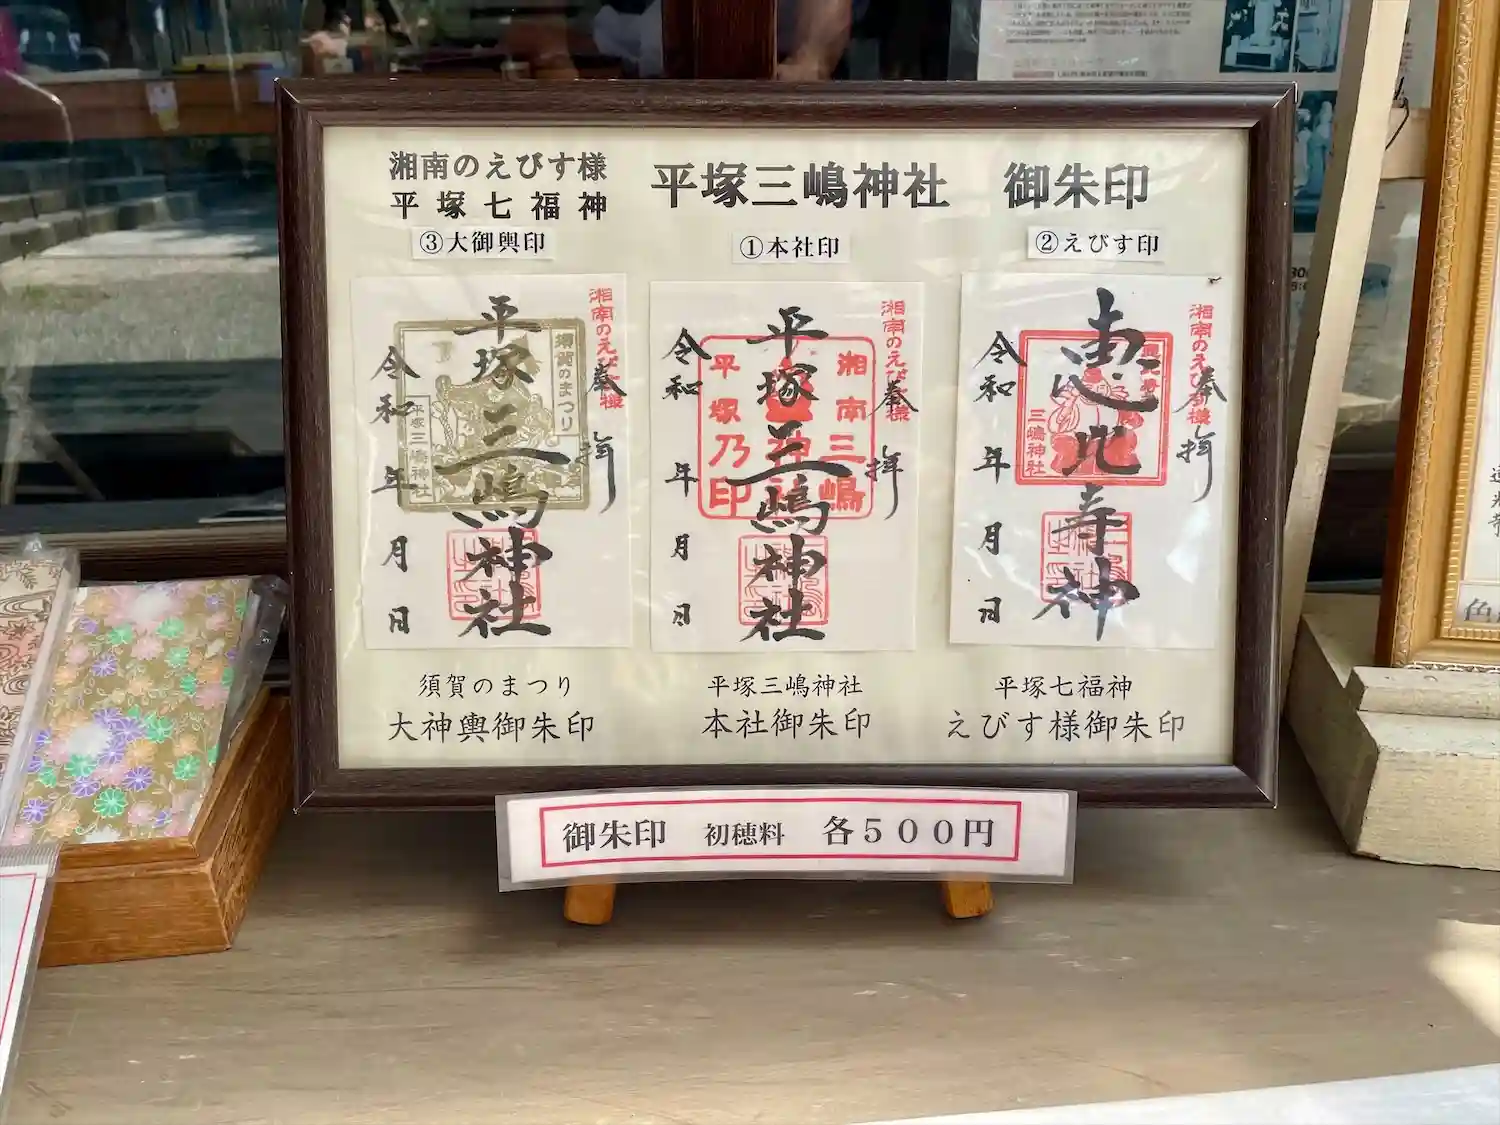 湘南のえびす様
平塚七福神
平塚三嶋神社 御朱印
③大御輿印
①本社印
②えびす印
湘南のえびす様
奉拝
平塚三嶋神社
須賀のまつり
平塚三嶋神社
令和 年 月 日
湘南のえびす様
奉拝
平塚三嶋神社
湘南三嶋
神社
平塚乃印
令和 年 月 日
湘南のえびす様
奉拝
恵比寿神
三嶋神社
令和 年 月 日
須賀のまつり
大神輿御朱印
平塚三嶋神社
本社御朱印
平塚七福神
えびす様御朱印
御朱印 初穂料 各500円